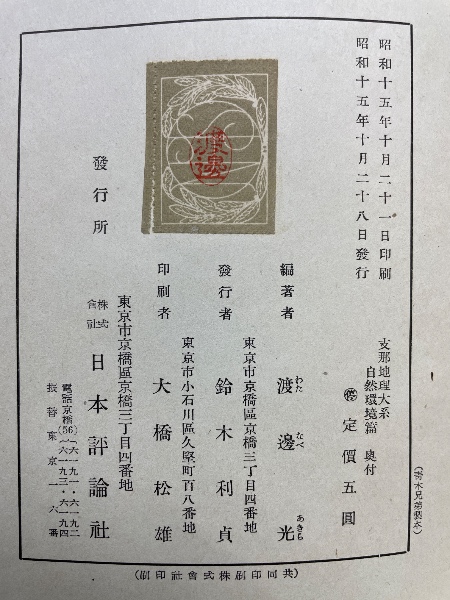 昭和十五年十月二十一日印刷
昭和十五年十月二十八日發行
支那地理大系
自然環境篇 奥付
定價五圓
編著者 渡邊光
わた なべ あきら
東京市京橋區京橋三丁目四番地
發行者 鈴木利貞
東京市小石川區久堅町百八番地
印刷者 大橋松雄
東京市京橋區京橋三丁目四番地
發行所 株式會社 日本評論社
電話京橋(56)(六一九一・六一九二
六一九三・六一九四
振替東京一六番
渡邊
(共同印刷株式會社印刷)
(青木兄弟製本)